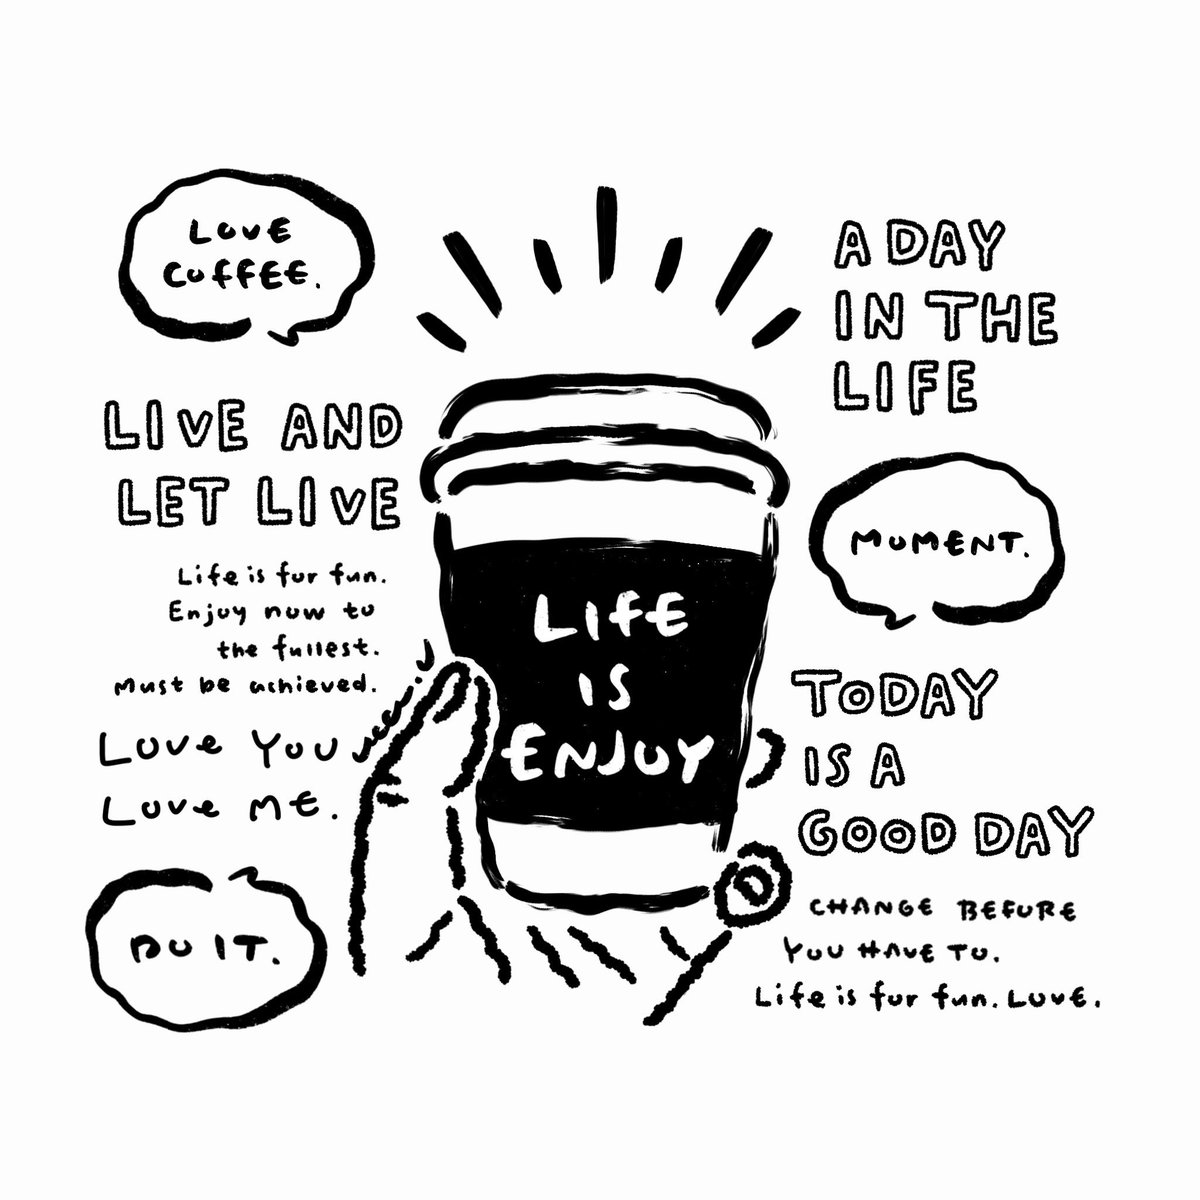 LOVE
COFFEE.
LIVE AND
LET LIVE
Life is for fun.
Enjoy now to
the fullest.
Must be achieved.
Love You
Love ME.
DO IT.
LIFE
IS
ENJOY
A DAY
IN THE
LIFE
MOMENT.
TODAY
IS A
GOOD DAY
CHANGE BEFORE
YOU HAVE TO.
Life is for fun. LOVE.